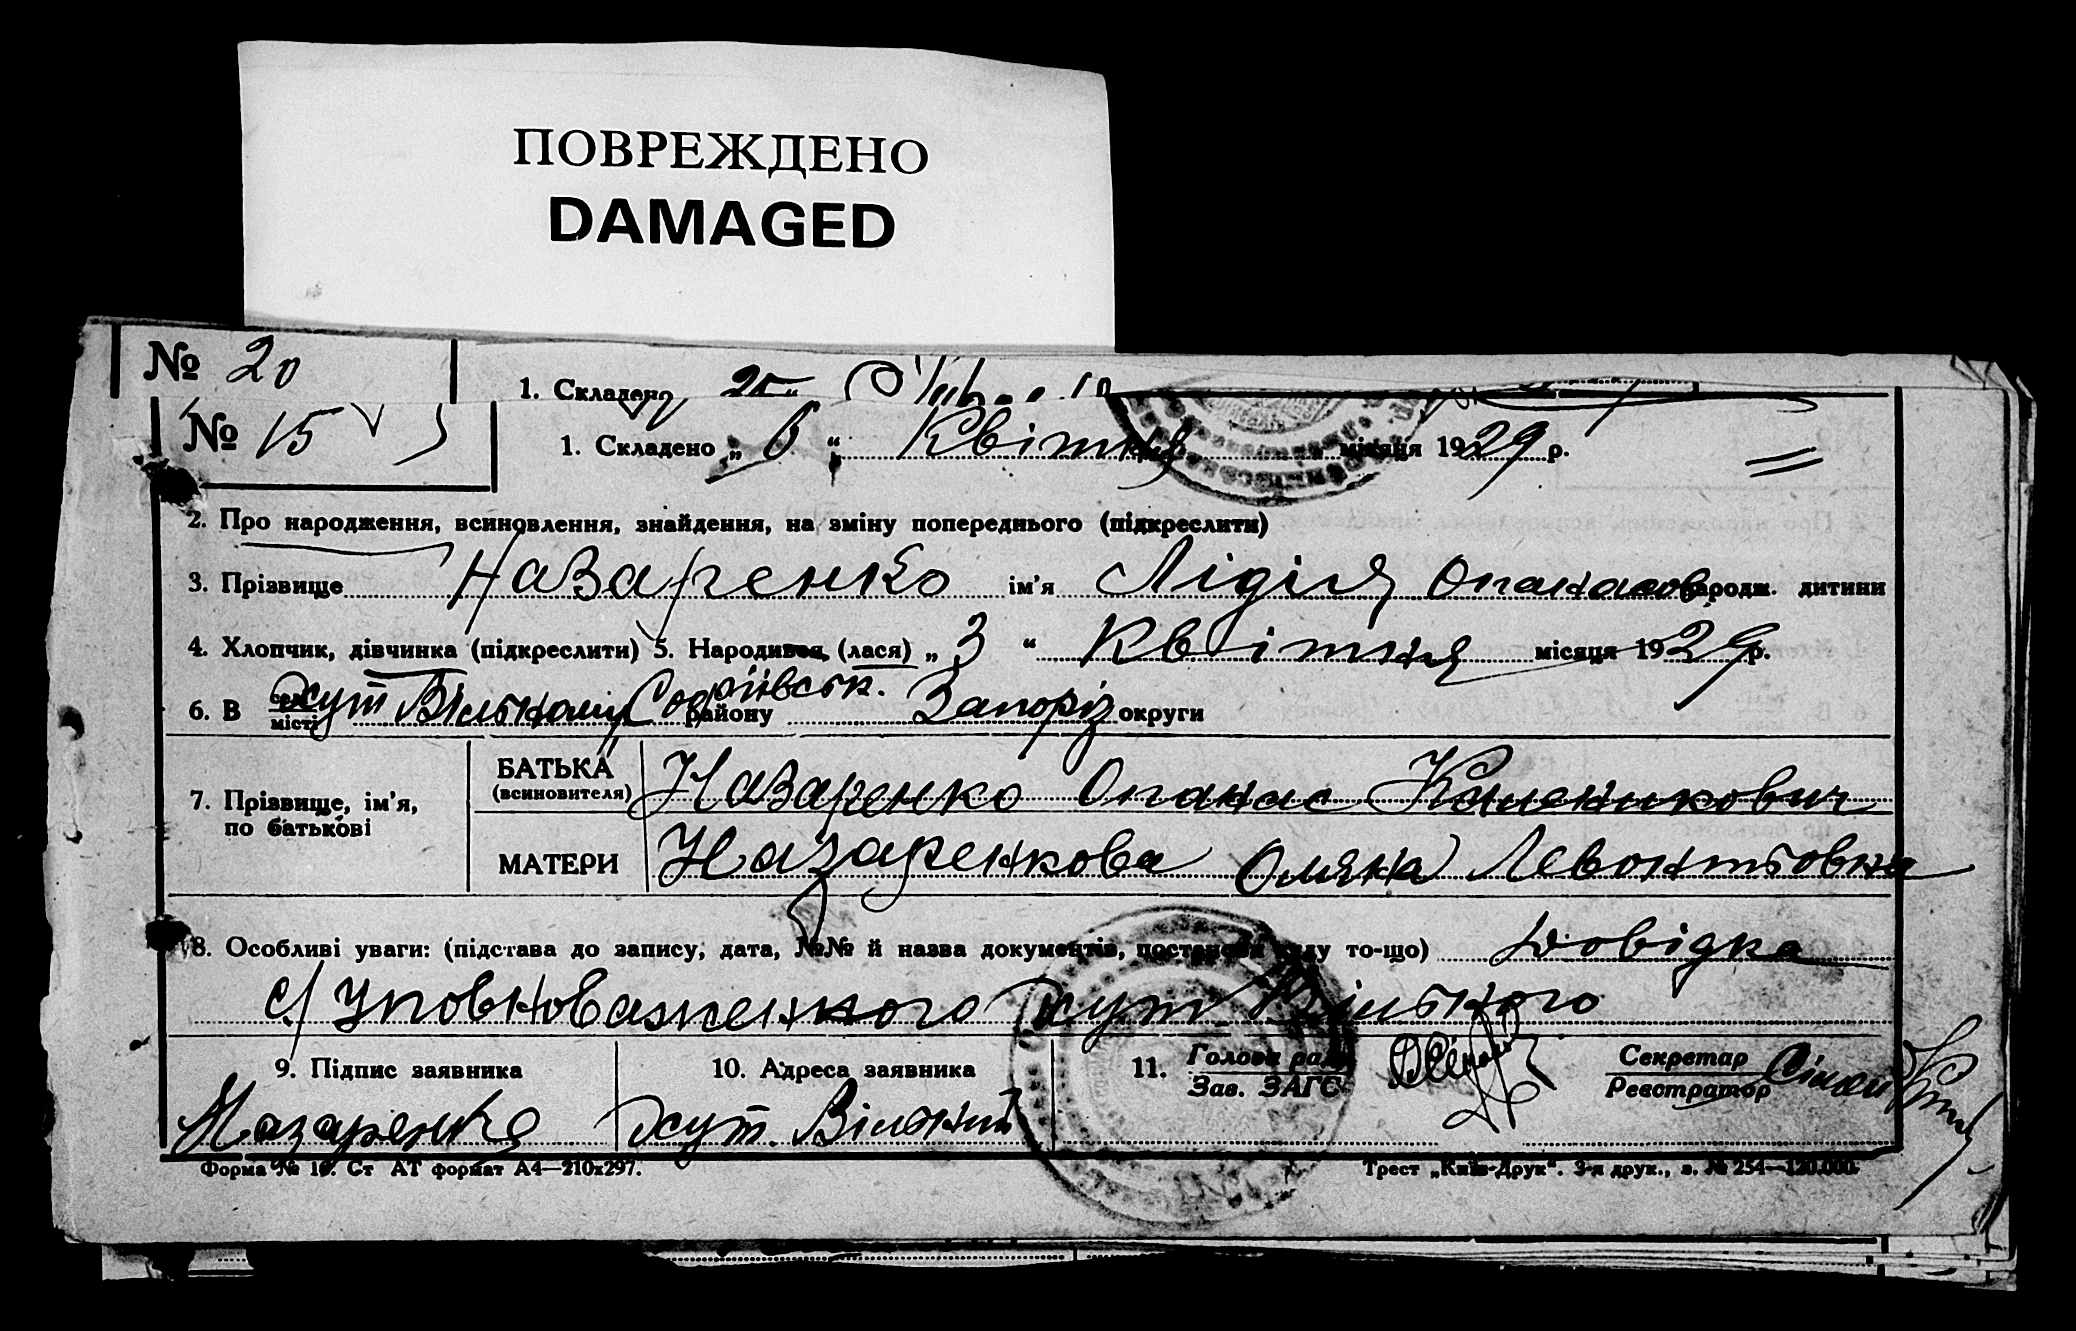 ПОВРЕЖДЕНО
DAMAGED
№ 20
1. Складено
№ 15
1. Складено „ 6 “ Квітня місяця 1929 р.
2. Про народження, всиновлення, знайдення, на зміну попереднього (підкреслити)
3. Прізвище Назаренко ім'я Лідія Опанасов народж. дитини
4. Хлопчик, дівчинка (підкреслити) 5. Народився, (лася) „ 3 “ Квітня місяця 1929 р.
6. В селі місті хут Вільному Софіївськ. району Запоріз округи
7. Прізвище, ім'я, по батькові
БАТЬКА (всиновителя) Назаренко Опанас
МАТЕРИ Назаренкова Левонтьовна
8. Особливі уваги: (підстава до запису, дата, №№ й назва документів, постанови суду то-що) Довідка
с/ уповноваженого хут Вільного
9. Підпис заявника 10. Адреса заявника 11. Голова ради Зав. ЗАГС Секретар Реєстратор
Назаренко хут. Вільний
Форма № 16. Ст АТ формат А4—210х297. Трест „Київ-Друк“. 3-я друк., з. № 254—120.000.